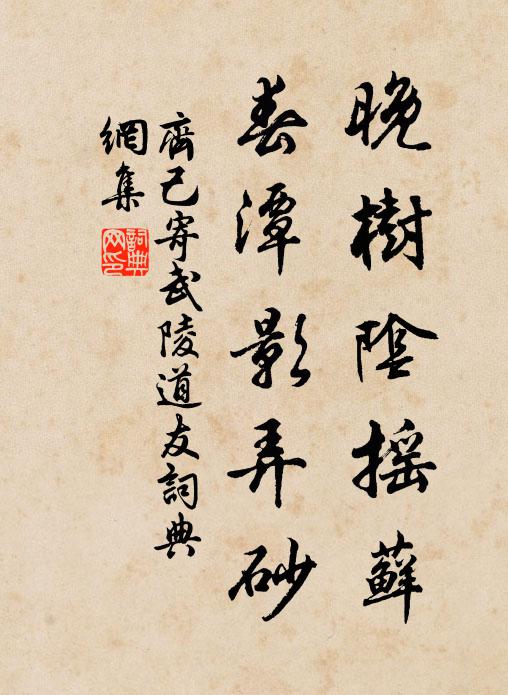 晚樹陰搖蘚
春潭影弄砂
齊己寄武陵道友詞典
網集
詞典
网印